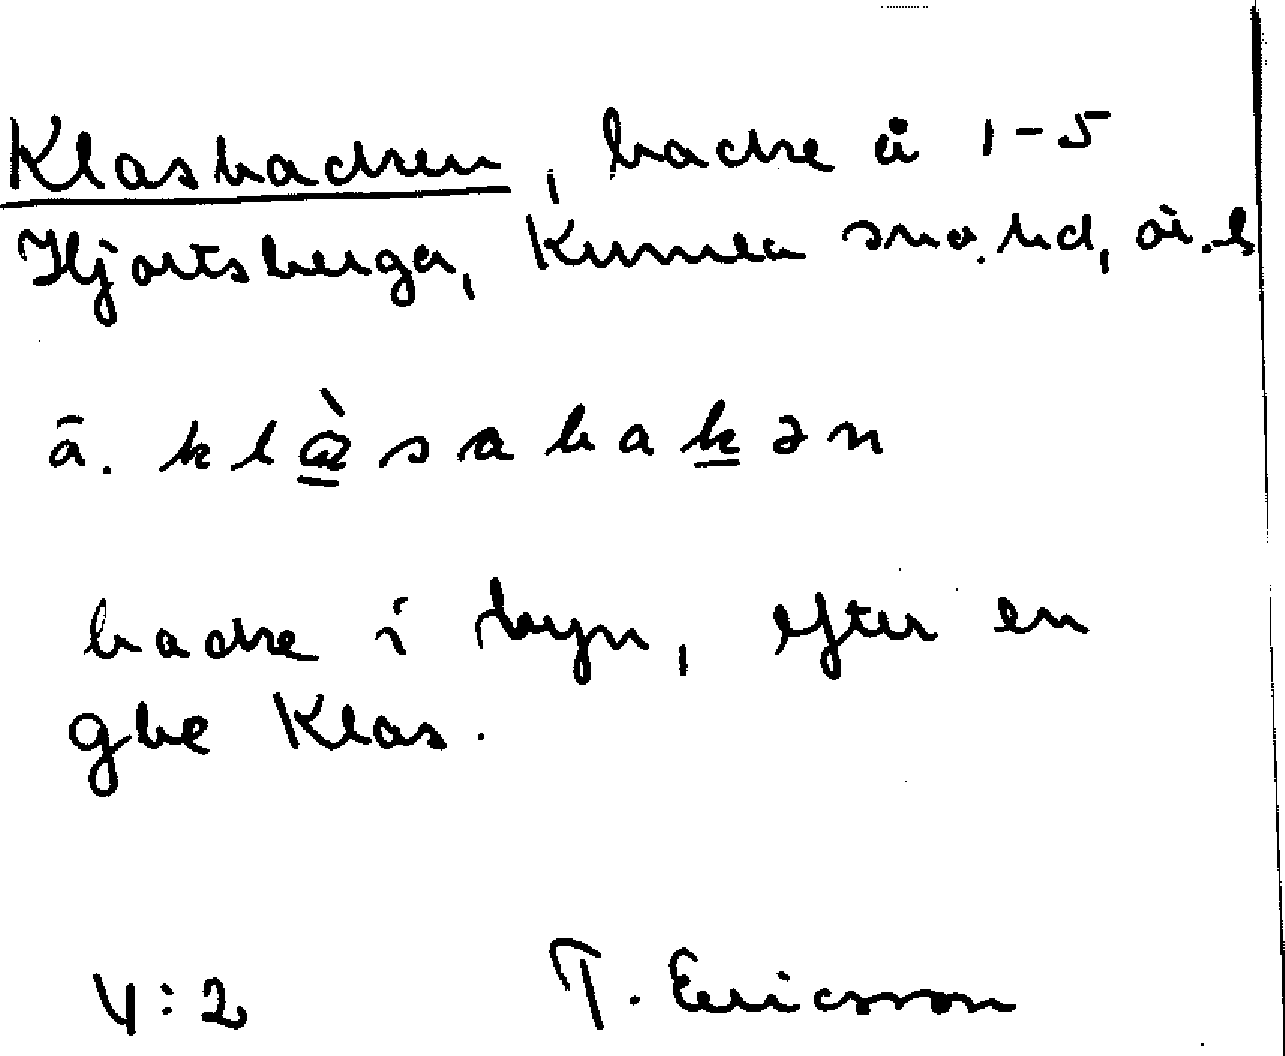 Klasbacken, backe å 1-5
Hjortsberga, Kumla sn o. hd, ö.l
å. klàsabakən
backe i byn, efter en
gbe Klas.
V:2 T. Ericsson